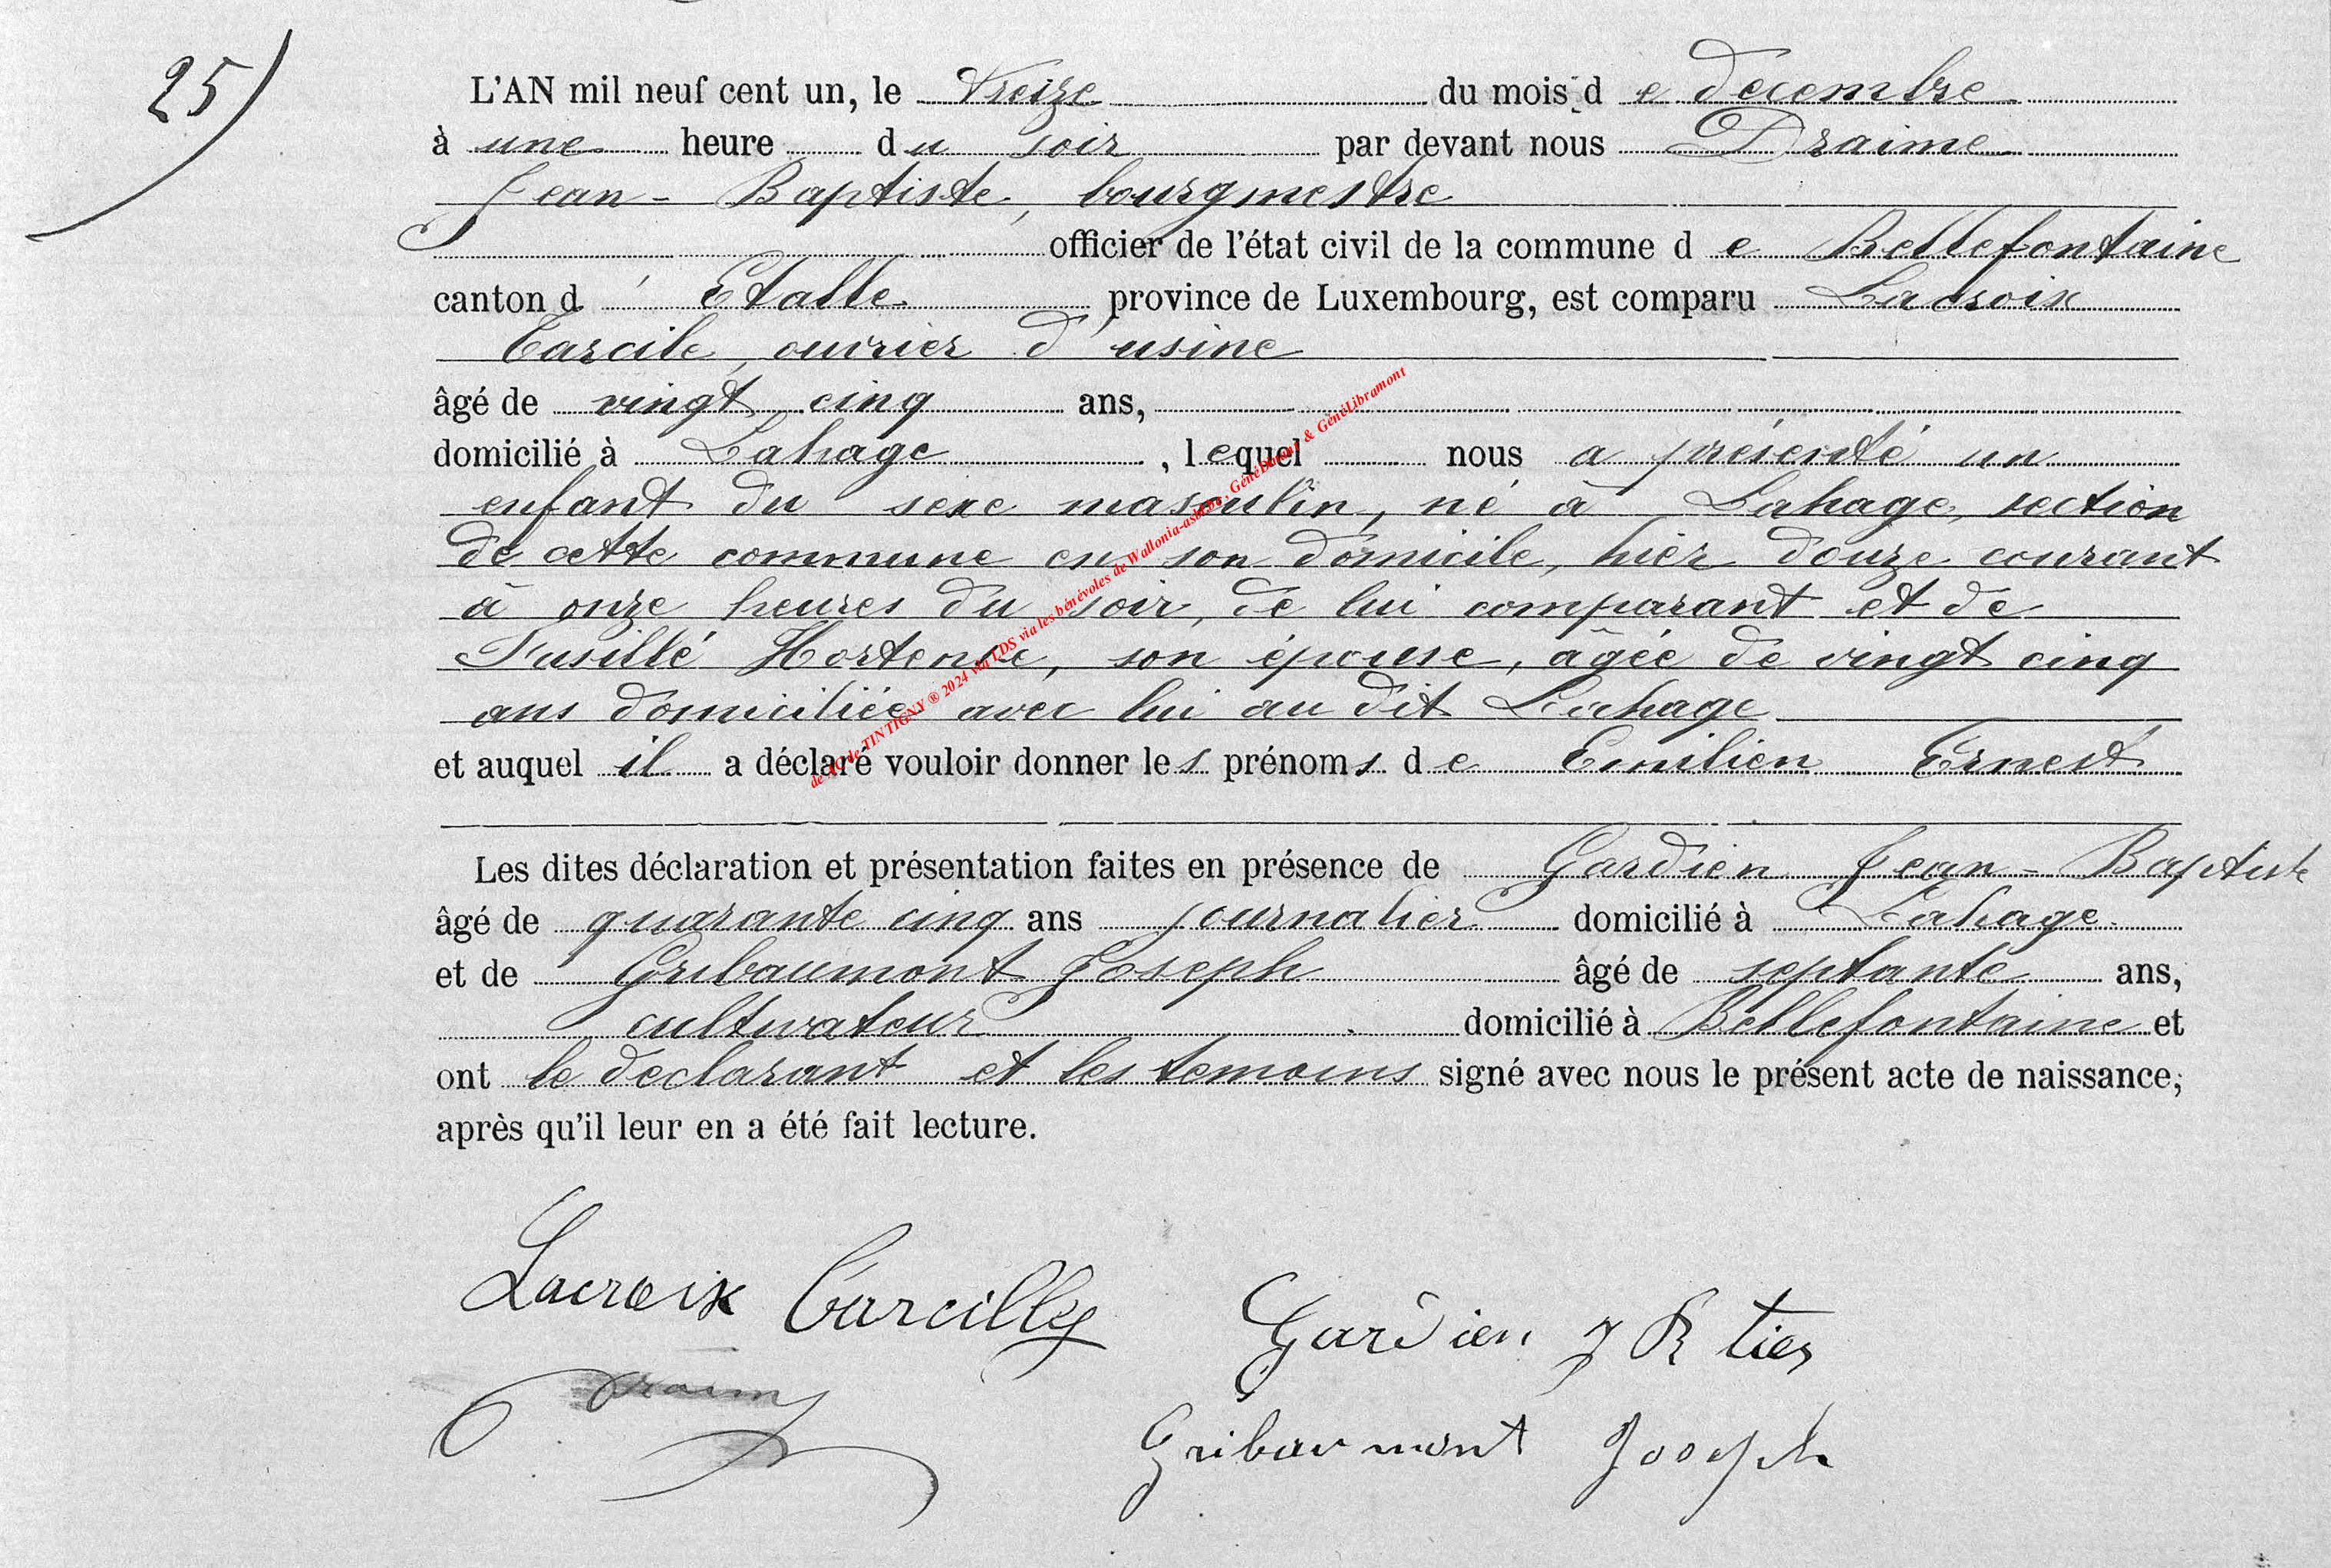 25)
L'AN mil neuf cent un, le treize du mois de décembre
à une heure du soir par devant nous Draime
Jean-Baptiste, bourgmestre
officier de l'état civil de la commune de Bellefontaine
canton d' Etalle province de Luxembourg, est comparu Lacroix
Tarcile, ouvrier d'usine
âgé de vingt cinq ans,
domicilié à Lahage, lequel nous a présenté un
enfant du sexe masculin, né à Lahage, section
de cette commune en son domicile, hier douze courant
à onze heures du soir, de lui comparant et de
Fusillé Hortense, son épouse, âgée de vingt cinq
ans domiciliée avec lui au dit Lahage
et auquel il a déclaré vouloir donner les prénoms de Emilien Ernest
Les dites déclaration et présentation faites en présence de Gardien Jean-Baptiste
âgé de quarante cinq ans journalier domicilié à Lahage
et de Gribaumont Joseph âgé de septante ans,
cultivateur domicilié à Bellefontaine et
ont le declarant et les temoins signé avec nous le présent acte de naissance,
après qu'il leur en a été fait lecture.
Lacroix Tarcille
Gardien J B tier
Draime
Gribaumont Joseph
de AC de TINTIGNY ® 2024 via LDS via les bénévoles de Wallonia-asbl.be, GénéDinant & GénéLibramont